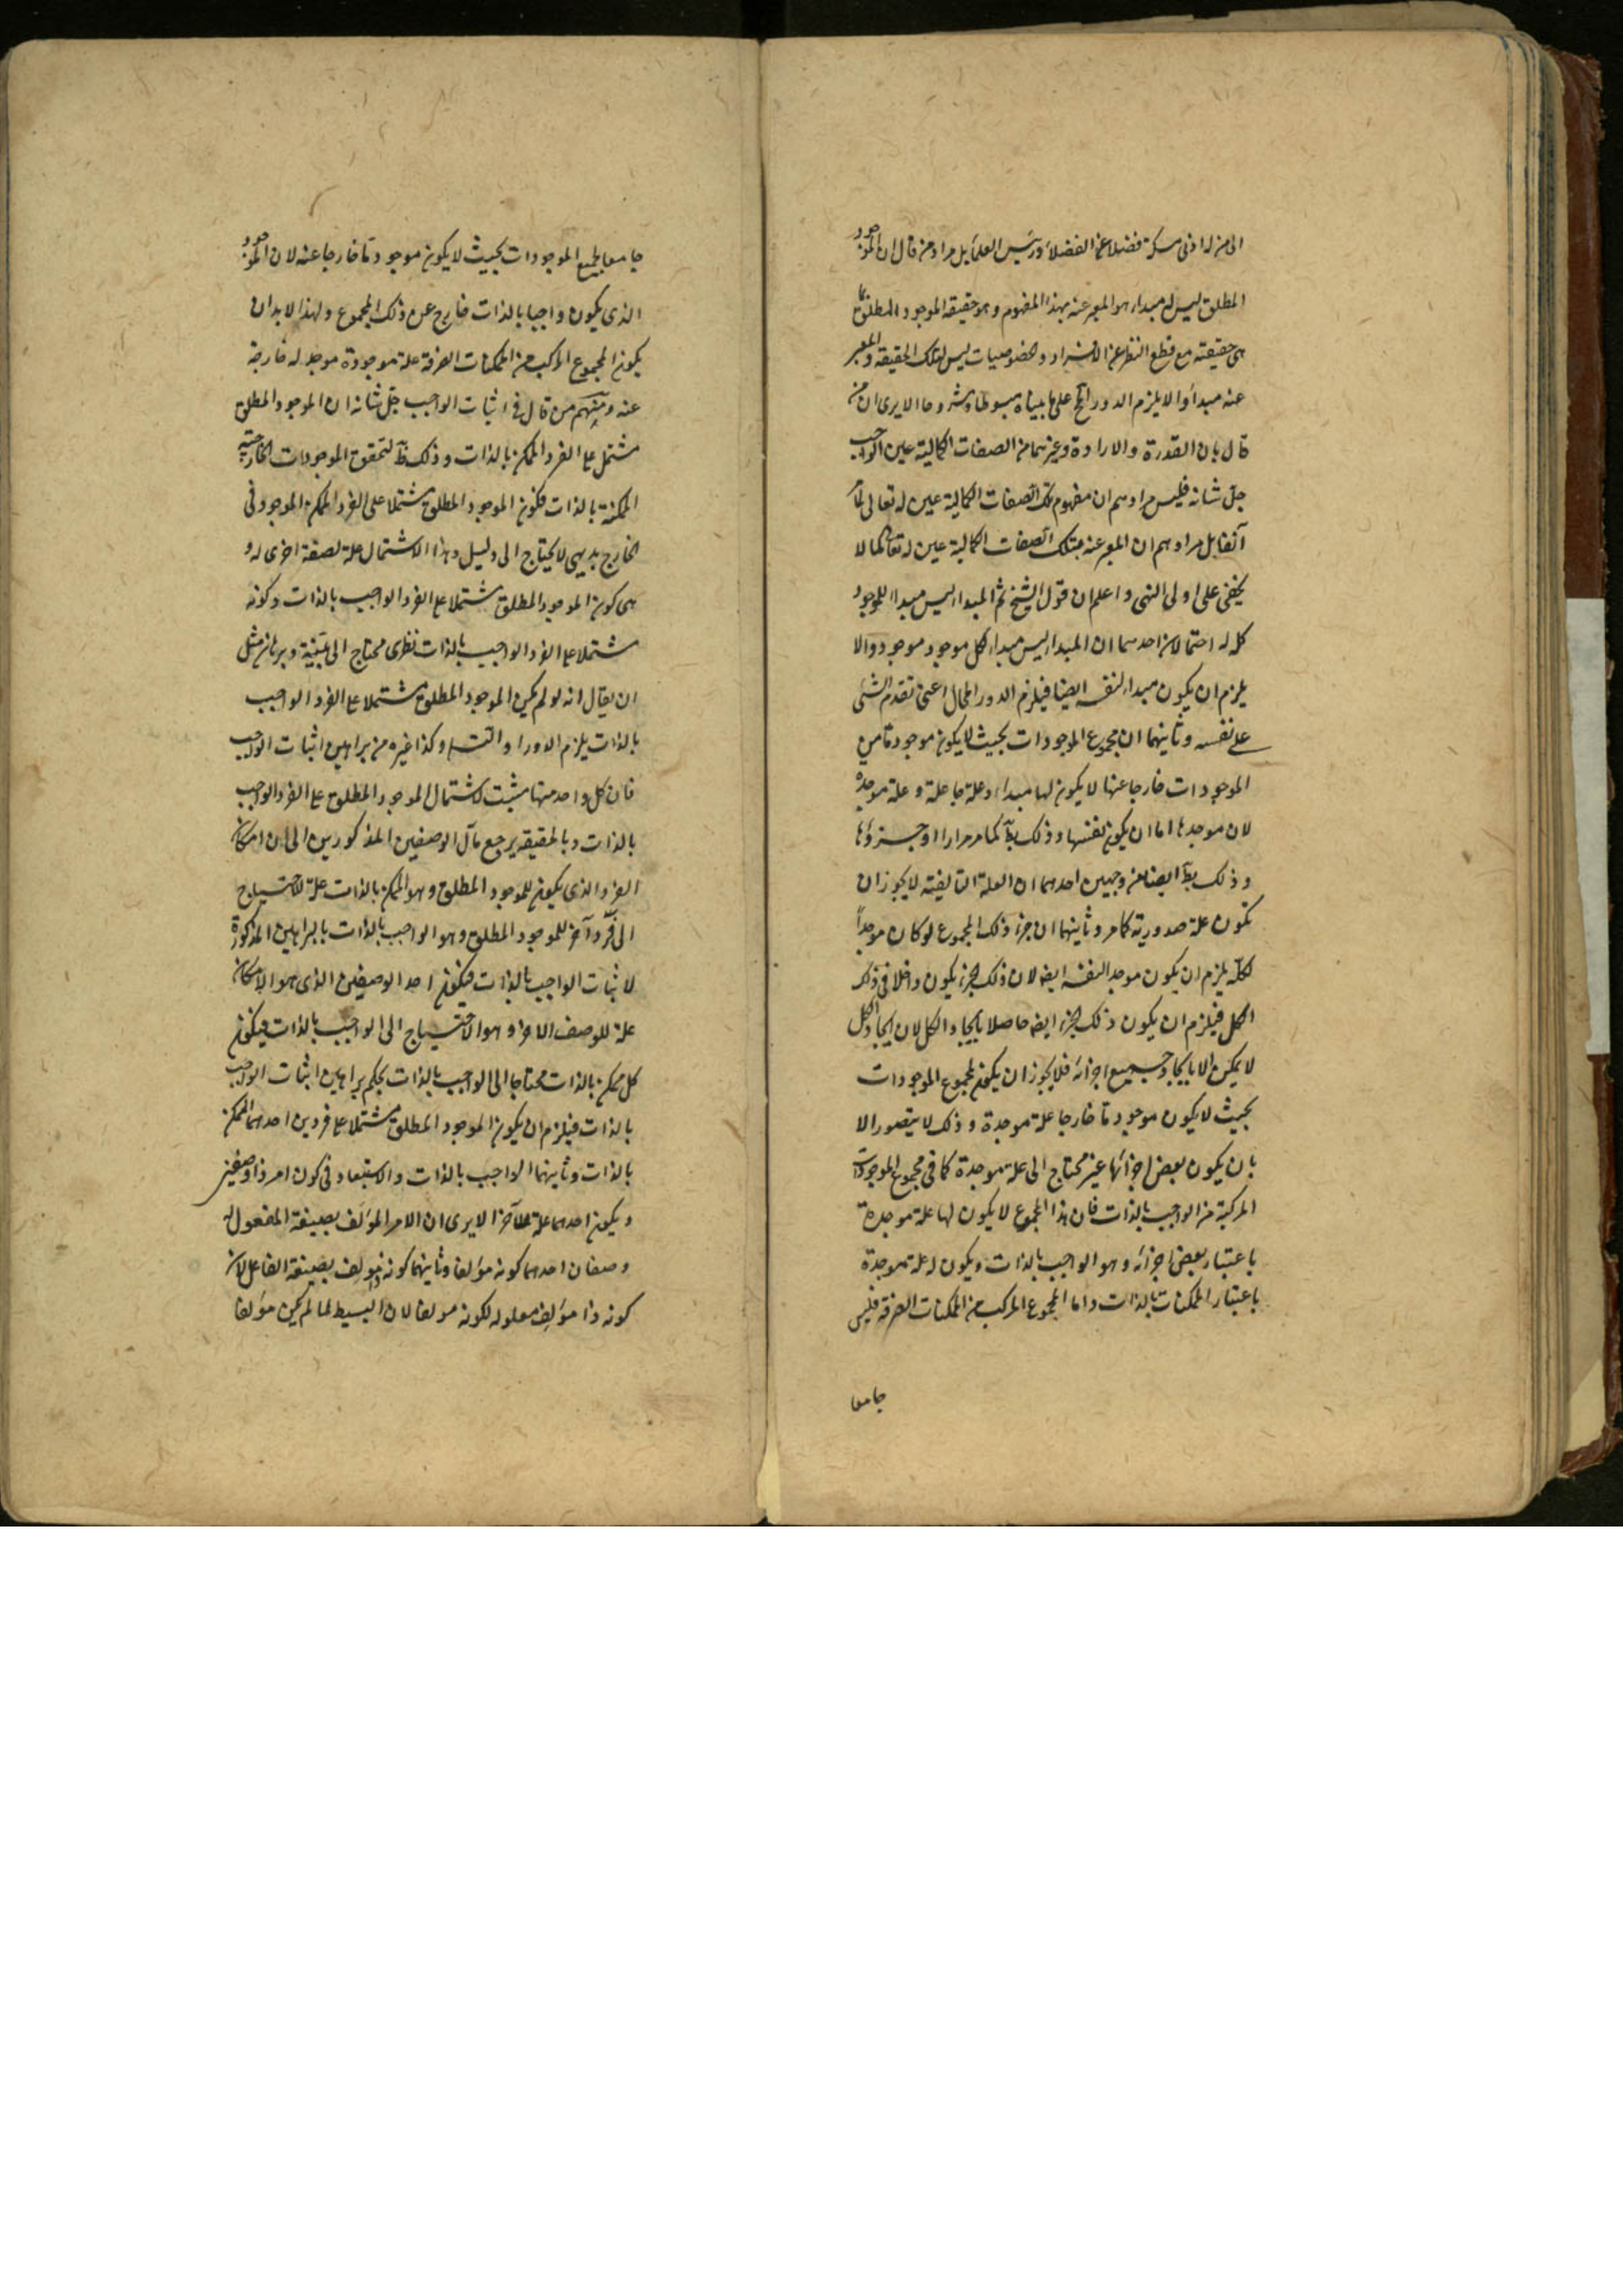 الى من له ادنى مسكة فضلا عن الفضلاء ورئيس العلماء بل مراد من قال ان الموجود
المطلق ليس له مبداء هو المعبر عنه بهذا المفهوم وهو حقيقة الموجود المطلق بما
هى حقيقته مع قطع النظر عن الافراد والخصوصيات ليس لتلك الحقيقة والمعبر
عنه مبدأ والا يلزم الدور الخ على ما بيناه مبسوطا ومشروحا الا يرى ان من
قال بان القدرة والارادة وغيرهما من الصفات الكمالية عين الواجب
جل شانه فليس مرادهم ان مفهوم تلك الصفات الكمالية عين له تعالى لما مر
آنفا بل مرادهم ان المعبر عنه بتلك الصفات الكمالية عين له تعالى كما لا
يخفى على اولى النهى واعلم ان قول الشيخ ثم المبداء ليس مبداء للموجود
كله له احتمالان احدهما ان المبداء ليس مبداء كل موجود موجود والا
يلزم ان يكون مبداء لنفسه ايضا فيلزم الدور المحال اعنى تقدم الشئ
على نفسه وثانيهما ان مجموع الموجودات بحيث لا يكون موجود ما من
الموجودات خارجا عنها لا يكون لها مبداء وعلة جاعلة وعلة موجدة
لان موجدها اما ان يكون نفسها وذلك بط كما مر مرارا او جزؤها
وذلك بط ايضا من وجهين احدهما ان العلة التاليفية لا يجوز ان
تكون علة صدورية كما مر وثانيهما ان جزء ذلك المجموع لو كان موجداً
لكله يلزم ان يكون موجد النفسه ايضا لان ذلك الجزء يكون داخلا فى ذلك
الكل فيلزم ان يكون ذلك الجزء ايضا حاصلا بايجاد الكل لان ايجاد الكل
لا يمكن الا بايجاد جميع اجزائه فلا يجوز ان يكون لمجموع الموجودات
بحيث لا يكون موجود ما خارجا علة موجدة وذلك لا يتصور الا
بان يكون بعض اجزائها غير محتاج الى علة موجدة كما فى مجموع الموجودات
المركبة من الواجب بالذات فان هذا المجموع لا يكون لها علة موجدة
باعتبار بعض اجزائه وهو الواجب بالذات ويكون له علة موجدة
باعتبار الممكنات بالذات واما المجموع المركب من الممكنات الصرفة فليس
جامعا
جامعا لجميع الموجودات بحيث لا يكون موجود ما خارجا عنه لان الموجود
الذى يكون واجبا بالذات خارج عن ذلك المجموع ولهذا لا بد ان
يكون المجموع المركب من الممكنات الصرفة علة موجودة موجد له خارجة
عنه ومنهم من قال فى اثبات الواجب جل شانه ان الموجود المطلق
مشتمل على الفرد الممكن بالذات وذلك ظ لتحقق الموجودات الخارجية
الممكنة بالذات فكون الموجود المطلق مشتملا على الفرد الممكن الموجود فى
الخارج بديهى لا يحتاج الى دليل وهذا الاشتمال علة لصفة اخرى له و
هى كون الموجود المطلق مشتملا على الفرد الواجب بالذات وكونه
مشتملا على الفرد الواجب بالذات نظرى محتاج الى بينة وبرهان مثل
ان يقال انه لو لم يكن الموجود المطلق مشتملا على الفرد الواجب
بالذات يلزم الدور او التسلسل وكذا غيره من براهين اثبات الواجب
فان كل واحد منها مثبت لاشتمال الموجود المطلق على الفرد الواجب
بالذات وبالحقيقة يرجع مآل الوصفين المذكورين الى ان امكان
الفرد الذى يكون للموجود المطلق وهو الممكن بالذات علة للاحتياج
الى فرد آخر للموجود المطلق وهو الواجب بالذات بالبراهين المذكورة
لاثبات الواجب بالذات فيكون احد الوصفين الذى هو الامكان
علة للوصف الاخر وهو الاحتياج الى الواجب بالذات فيكون
كل ممكن بالذات محتاجا الى الواجب بالذات بحكم براهين اثبات الواجب
بالذات فيلزم ان يكون الموجود المطلق مشتملا على فردين احدهما الممكن
بالذات وثانيهما الواجب بالذات والاستبعاد فى كون امر ذا وصفين
ويكون احدهما علة للآخر الا يرى ان الامر المؤلف بصيغة المفعول له
وصفان احدهما كونه مؤلفا وثانيهما كونه ذا مؤلف بصيغة الفاعل لان
كونه ذا مؤلف معلوله لكونه مولفا لان البسيط لما لم يكن مؤلفا